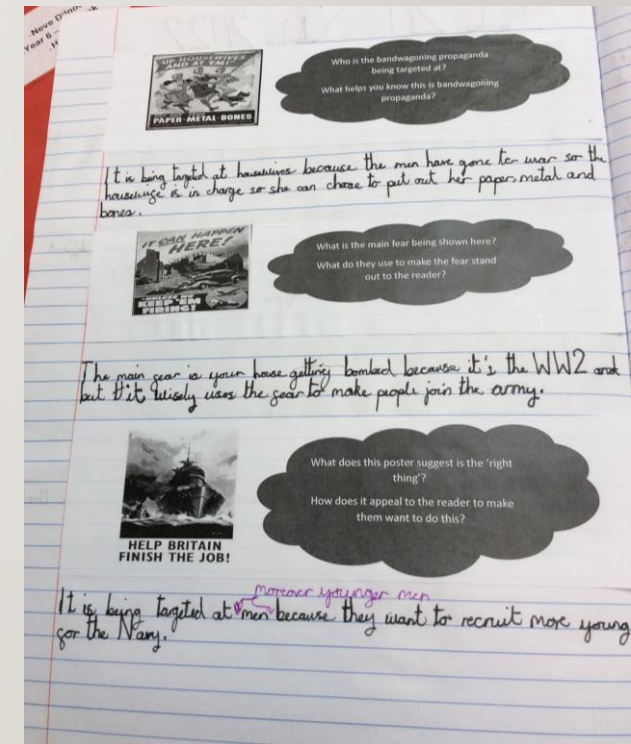 Year 6
UP HOUSEWIVES
AND AT 'EM!
PAPER·METAL·BONES
Who is the bandwagoning propaganda
being targeted at?
What helps you know this is bandwagoning
propaganda?
It is being targeted at housewives because the men have gone to war so the
housewife is in charge so she can chose to put out her paper, metal and
bones.
IT CAN HAPPEN
HERE!
KEEP 'EM
FIRING!
What is the main fear being shown here?
What do they use to make the fear stand
out to the reader?
The main fear is your house getting bombed because it's the WW2 and
but it wisely uses the fear to make people join the army.
What does this poster suggest is the 'right
thing'?
How does it appeal to the reader to make
them want to do this?
HELP BRITAIN
FINISH THE JOB!
Moreover younger men
It is being targeted at men because they want to recruit more young
for the Navy.